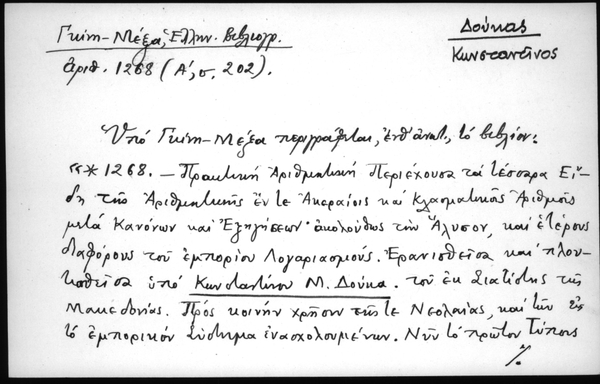 Γκίνη-Μέξα, Ἑλλην. Βιβλιογρ.
ἀριθ. 1268 (Α΄, σ. 202).
Δούκας
Κωνσταντῖνος
Ὑπό Γκίνη-Μέξα περιγράφεται, ἐνθ' ἀνωτ., τό βιβλίον:
"* 1268. — Πρακτική Ἀριθμητική Περιέχουσα τά τέσσαρα Εἴ-
δη τῆς Ἀριθμητικῆς ἔν τε Ἀκεραίοις καί Κλασματικοῖς Ἀριθμοῖς
μετά Κανόνων καί Ἐξηγήσεων· ἀκολούθως τήν Ἅλυσον, καί ἑτέρους
διαφόρους τοῦ ἐμπορίου Λογαριασμούς. Ἐρανισθεῖσα καί πλου-
τισθεῖσα ὑπό Κωνσταντίνου Μ. Δούκα. τοῦ ἐκ Σιατίστης τῆς
Μακεδονίας. Πρός κοινήν χρῆσιν τῆς τε Νεολαίας, καί τῶν εἰς
τό ἐμπορικόν Σύστημα ἐνασχολουμένων. Νῦν τό πρῶτον Τύποις
./.